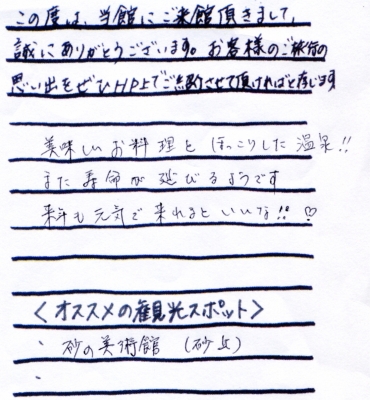 この度は、当館にご来館頂きまして、
誠にありがとうございます。お客様のご旅行の
思い出をぜひHP上でご紹介させて頂ければと存じます
美味しいお料理とほっこりした温泉!!
また寿命が延びるようです
来年も元気で来れるといいな!!♡
〈オススメの観光スポット〉
・砂の美術館 (砂丘)
・